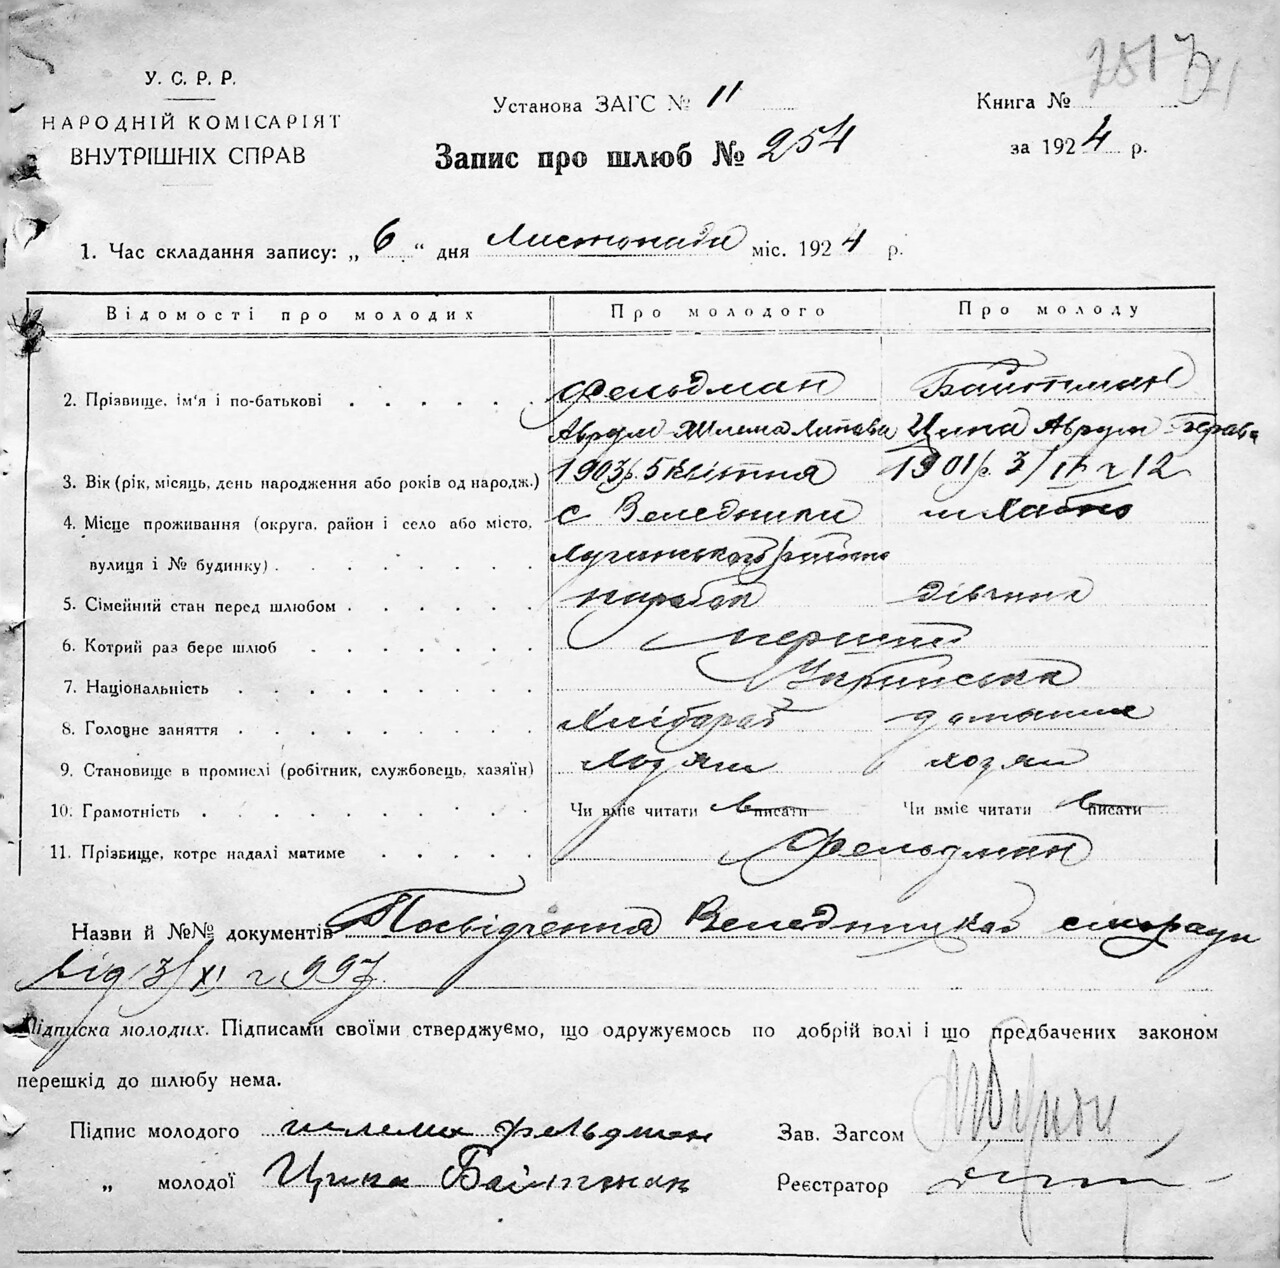 У. С. Р. Р.
НАРОДНІЙ КОМІСАРІЯТ
ВНУТРІШНІХ СПРАВ
Установа ЗАГС № 11
Запис про шлюб № 254
Книга №
за 1924 р.
1. Час складання запису: „ 6 “ дня Листопада міс. 1924 р.
Відомості про молодих Про молодого Про молоду
2. Прізвище, ім'я і по-батькові Фельдман Байтман
Аврум Шлема Липовів Цина Аврум
3. Вік (рік, місяць, день народження або років од народж.) 1903 р. 5 квітня 1901 р. 3/
4. Місце проживання (округа, район і село або місто, с Веледники м Хабно
вулиця і № будинку) району
5. Сімейний стан перед шлюбом парубок дівчина
6. Котрий раз бере шлюб перший
7. Національність
8. Головне заняття Хлібороб домашня
9. Становище в промислі (робітник, службовець, хазяїн)
10. Грамотність Чи вміє читати писати Чи вміє читати писати
11. Прізбище, котре надалі матиме Фельдман
Назви й №№ документів Посвідчення Веледницкої сільради
від 3/XI ч 997.
Підписка молодих. Підписами своїми стверджуємо, що одружуємось по добрій волі і що предбачених законом
перешкід до шлюбу нема.
Підпис молодого шлема фельдман Зав. Загсом
„ молодої Байтман Реєстратор